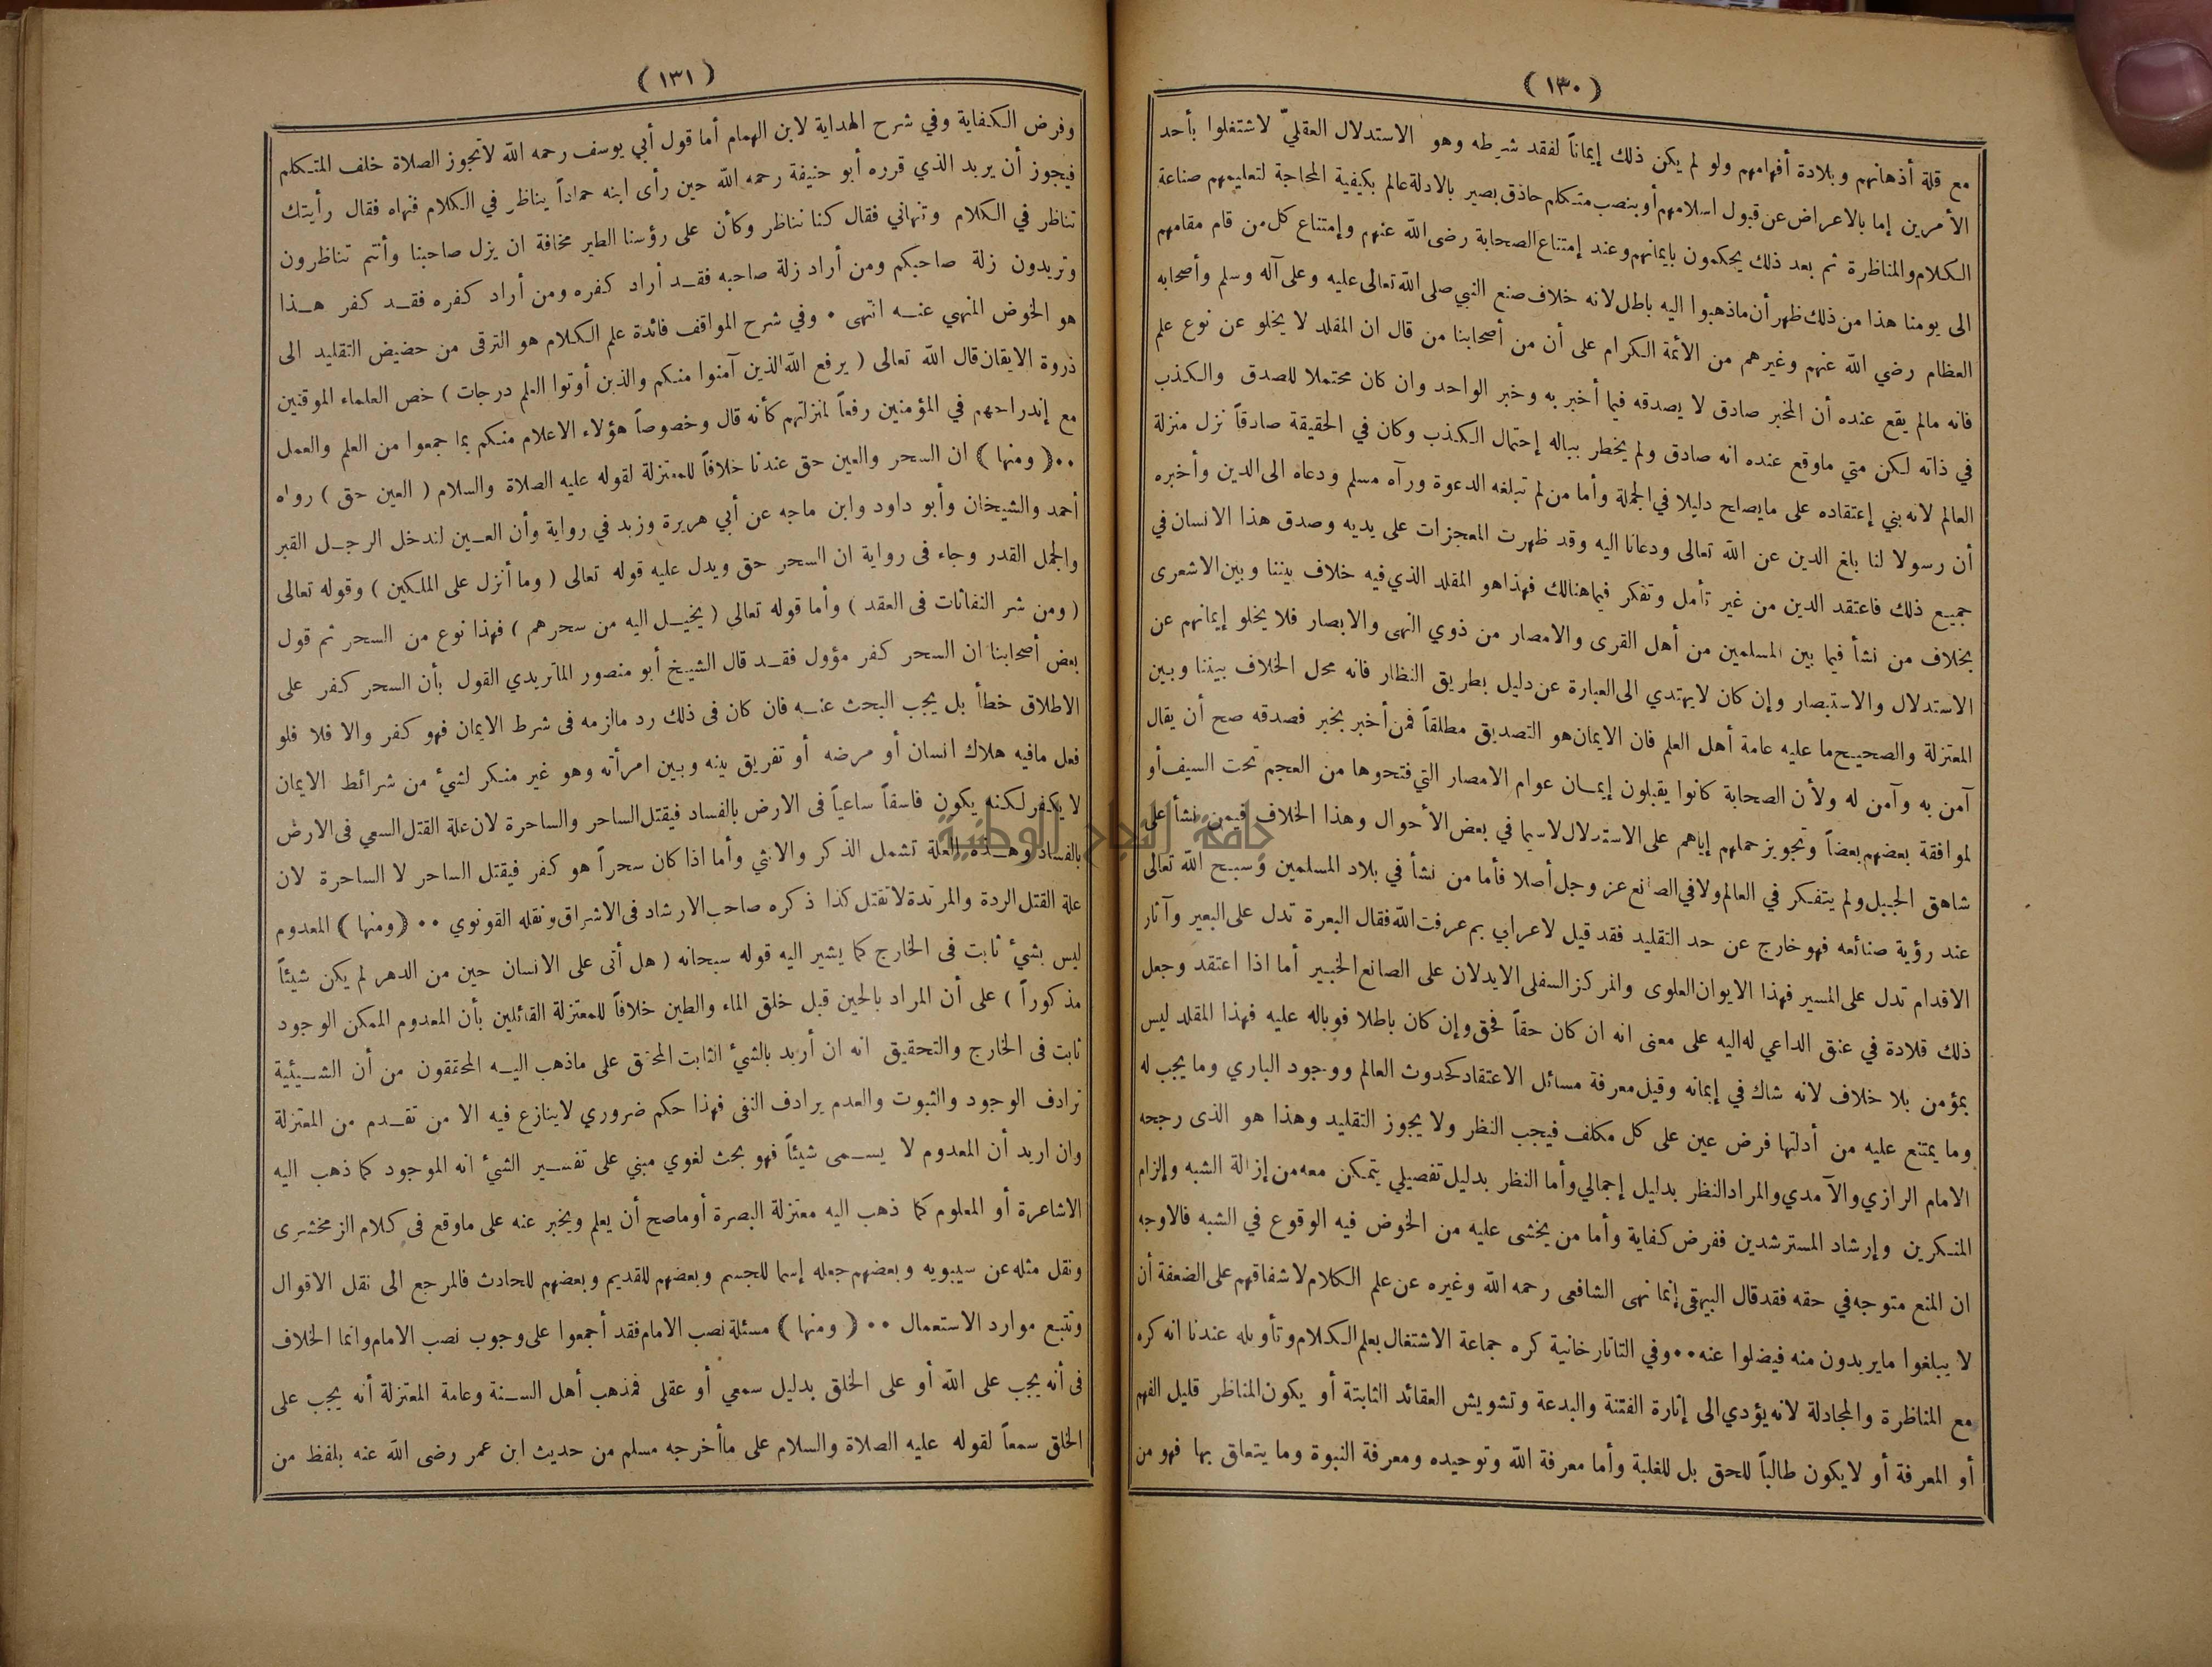 (١٣٠)
مع قلة أذهانهم وبلادة أفهامهم ولو لم يكن ذلك إيماناً لفقد شرطه وهو الاستدلال العقليّ لاشتغلوا بأحد
الأمرين إما بالاعراض عن قبول اسلامهم أو بنصب متكلم حاذق بصير بالادلة عالم بكيفية المحاجة لتعليمهم صناعة
الكلام والمناظرة ثم بعد ذلك يحكمون بايمانهم وعند إمتناع الصحابة رضى الله عنهم وإمتناع كل من قام مقامهم
الى يومنا هذا من ذلك ظهر أن ماذهبوا اليه باطل لانه خلاف صنع النبي صلى الله تعالى عليه وعلى آله وسلم وأصحابه
العظام رضي الله عنهم وغيرهم من الأئمة الكرام على أن من أصحابنا من قال ان المقلد لا يخلو عن نوع علم
فانه مالم يقع عنده أن المخبر صادق لا يصدقه فيما أخبر به وخبر الواحد وان كان محتملا للصدق والكذب
في ذاته لكن متي ماوقع عنده انه صادق ولم يخطر بباله إحتمال الكذب وكان في الحقيقة صادقاً نزل منزلة
العالم لانه بني إعتقاده على مايصلح دليلا في الجملة وأما من لم تبلغه الدعوة ورآه مسلم ودعاه الى الدين وأخبره
أن رسولا لنا بلغ الدين عن الله تعالى ودعانا اليه وقد ظهرت المعجزات على يديه وصدق هذا الانسان في
جميع ذلك فاعتقد الدين من غير تأمل وتفكر فيما هنالك فهذا هو المقلد الذي فيه خلاف بيننا وبين الاشعرى
بخلاف من نشأ فيما بين المسلمين من أهل القرى والامصار من ذوي النهى والابصار فلا يخلو إيمانهم عن
الاستدلال والاستبصار وإن كان لايهتدي الى العبارة عن دليل بطريق النظار فانه محل الخلاف بيننا وبين
المعتزلة والصحيح ما عليه عامة أهل العلم فان الايمان هو التصديق مطلقاً فمن أخبر بخبر فصدقه صح أن يقال
آمن به وآمن له ولأن الصحابة كانوا يقبلون إيمان عوام الامصار التي فتحوها من العجم تحت السيف أو
لموافقة بعضهم بعضاً وتجويز حملهم إياهم على الاستدلال لاسيما في بعض الأحوال وهذا الخلاف فيمن نشأ على
شاهق الجبل ولم يتفكر في العالم ولا في الصانع عز وجل أصلا فأما من نشأ في بلاد المسلمين وسبح الله تعالى
عند رؤية صنائعه فهو خارج عن حد التقليد فقد قيل لاعرابي بم عرفت الله فقال البعرة تدل على البعير وآثار
الاقدام تدل على المسير فهذا الايوان العلوى والمركز السفلى الايدلان على الصانع الخبير أما اذا اعتقد وجعل
ذلك قلادة في عنق الداعي له اليه على معنى انه ان كان حقاً فحق وإن كان باطلا فوباله عليه فهذا المقلد ليس
بمؤمن بلا خلاف لانه شاك في إيمانه وقيل معرفة مسائل الاعتقاد كحدوث العالم ووجود الباري وما يجب له
وما يمتنع عليه من أدلتها فرض عين على كل مكلف فيجب النظر ولا يجوز التقليد وهذا هو الذى رجحه
الامام الرازي والآمدي والمراد النظر بدليل إجمالي وأما النظر بدليل تفصيلي يتمكن معه من إزالة الشبه وإلزام
المنكرين وإرشاد المسترشدين ففرض كفاية وأما من يخشى عليه من الخوض فيه الوقوع في الشبه فالاوجه
ان المنع متوجه في حقه فقد قال البيهقى إنما نهى الشافعى رحمه الله وغيره عن علم الكلام لاشفاقهم على الضعفة أن
لا يبلغوا مايريدون منه فيضلوا عنه ٠٠ وفي التاتارخانية كره جماعة الاشتغال بعلم الكلام وتأويله عندنا انه كره
مع المناظرة والمجادلة لانه يؤدي الى إثارة الفتنة والبدعة وتشويش العقائد الثابتة أو يكون المناظر قليل الفهم
أو المعرفة أو لايكون طالباً للحق بل للغلبة وأما معرفة الله وتوحيده ومعرفة النبوة وما يتعلق بها فهو من
(١٣١)
وفرض الكفاية وفي شرح الهداية لابن الهمام أما قول أبي يوسف رحمه الله لاتجوز الصلاة خلف المتكلم
فيجوز أن يريد الذي قرره أبو حنيفة رحمه الله حين رأى ابنه حماداً يناظر في الكلام فنهاه فقال رأيتك
تناظر في الكلام وتنهاني فقال كنا نناظر وكأن على رؤسنا الطير مخافة ان يزل صاحبنا وأنتم تناظرون
وتريدون زلة صاحبكم ومن أراد زلة صاحبه فقد أراد كفره ومن أراد كفره فقد كفر هذا
هو الخوض المنهي عنه انتهى ٠ وفي شرح المواقف فائدة علم الكلام هو الترقى من حضيض التقليد الى
ذروة الايقان قال الله تعالى ( يرفع الله الذين آمنوا منكم والذين أوتوا العلم درجات ) خص العلماء الموقنين
مع إندراجهم في المؤمنين رفعاً لمنزلتهم كأنه قال وخصوصاً هؤلاء الاعلام منكم بما جمعوا من العلم والعمل
٠٠ ( ومنها ) ان السحر والعين حق عندنا خلافاً للمعتزلة لقوله عليه الصلاة والسلام ( العين حق ) رواه
أحمد والشيخان وأبو داود وابن ماجه عن أبي هريرة وزيد في رواية وأن العين لتدخل الرجل القبر
والجمل القدر وجاء فى رواية ان السحر حق ويدل عليه قوله تعالى ( وما أنزل على الملكين ) وقوله تعالى
( ومن شر النفاثات فى العقد ) وأما قوله تعالي ( يخيل اليه من سحرهم ) فهذا نوع من السحر ثم قول
بعض أصحابنا ان السحر كفر مؤول فقد قال الشيخ أبو منصور الماتريدي القول بأن السحر كفر على
الاطلاق خطأ بل يجب البحث عنه فان كان فى ذلك رد مالزمه فى شرط الايمان فهو كفر والا فلا فلو
فعل مافيه هلاك انسان أو مرضه أو تفريق بينه وبين امرأته وهو غير منكر لشئ من شرائط الايمان
لا يكفر لكنه يكون فاسقاً ساعياً فى الارض بالفساد فيقتل الساحر والساحرة لان علة القتل السعي فى الارض
بالفساد وهذه العلة تشمل الذكر والانثي وأما اذا كان سحراً هو كفر فيقتل الساحر لا الساحرة لان
علة القتل الردة والمرتدة لاتقتل كذا ذكره صاحب الارشاد فى الاشراق ونقله القونوي ٠٠ ( ومنها ) المعدوم
ليس بشئ ثابت فى الخارج كما يشير اليه قوله سبحانه ( هل أتى على الانسان حين من الدهر لم يكن شيئاً
مذكوراً ) على أن المراد بالحين قبل خلق الماء والطين خلافاً للمعتزلة القائلين بأن المعدوم الممكن الوجود
ثابت فى الخارج والتحقيق انه ان أريد بالشئ الثابت المحقق على ماذهب اليه المحققون من أن الشيئية
ترادف الوجود والثبوت والعدم يرادف النفى فهذا حكم ضروري لاينازع فيه الا من تقدم من المعتزلة
وان اريد أن المعدوم لا يسمى شيئاً فهو بحث لغوي مبني على تفسير الشئ انه الموجود كما ذهب اليه
الاشاعرة أو المعلوم كما ذهب اليه معتزلة البصرة أو ماصح أن يعلم ويخبر عنه على ماوقع فى كلام الزمخشرى
ونقل مثله عن سيبويه وبعضهم جعله إسما للجسم وبعضهم للقديم وبعضهم للحادث فالمرجع الى نقل الاقوال
وتتبع موارد الاستعمال ٠٠ ( ومنها ) مسئلة نصب الامام فقد أجمعوا على وجوب نصب الامام وانما الخلاف
فى أنه يجب على الله أو على الخلق بدليل سمعي أو عقلى فمذهب أهل السنة وعامة المعتزلة أنه يجب على
الخلق سمعاً لقوله عليه الصلاة والسلام على ماأخرجه مسلم من حديث ابن عمر رضى الله عنه بلفظ من
جامعة النجاح الوطنية